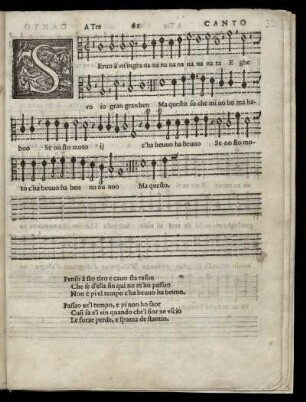 A Tre 81 CANTO
S Emo à vn'ingra na na na na na na na ta E ghe
vo io gran gran ben Ma questo sè che mi no ho ma ha-
buo Se no sto moto ij c'ha beuuo ha beuuo Se no sto mo-
to c'ha beuuo ha ben na na uuo Ma questo.
Penso à sto tiro e cauo sta rason
Che se d'ella fin qui no m'ho passuo
Non è pi el tempo c'ha beuuo ha beuuo.
Passao xe'l tempo, e pi non ho saor
Cusi fa e'l vin quando che'l fior xe vscio
Le forze perde, e spuzza de stantio.